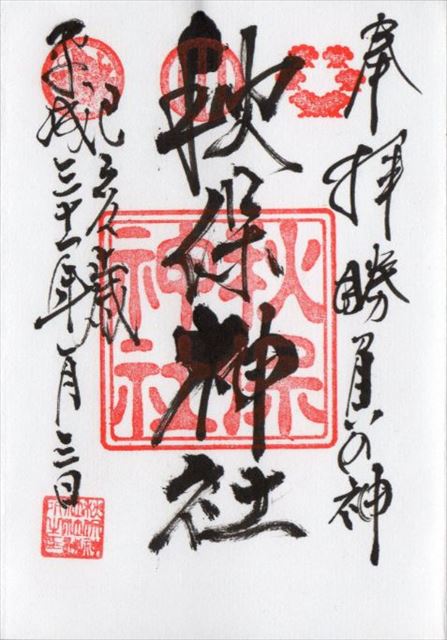 奉拝 勝負の神
秋保神社
秋保神社
平成三十一年一月三日